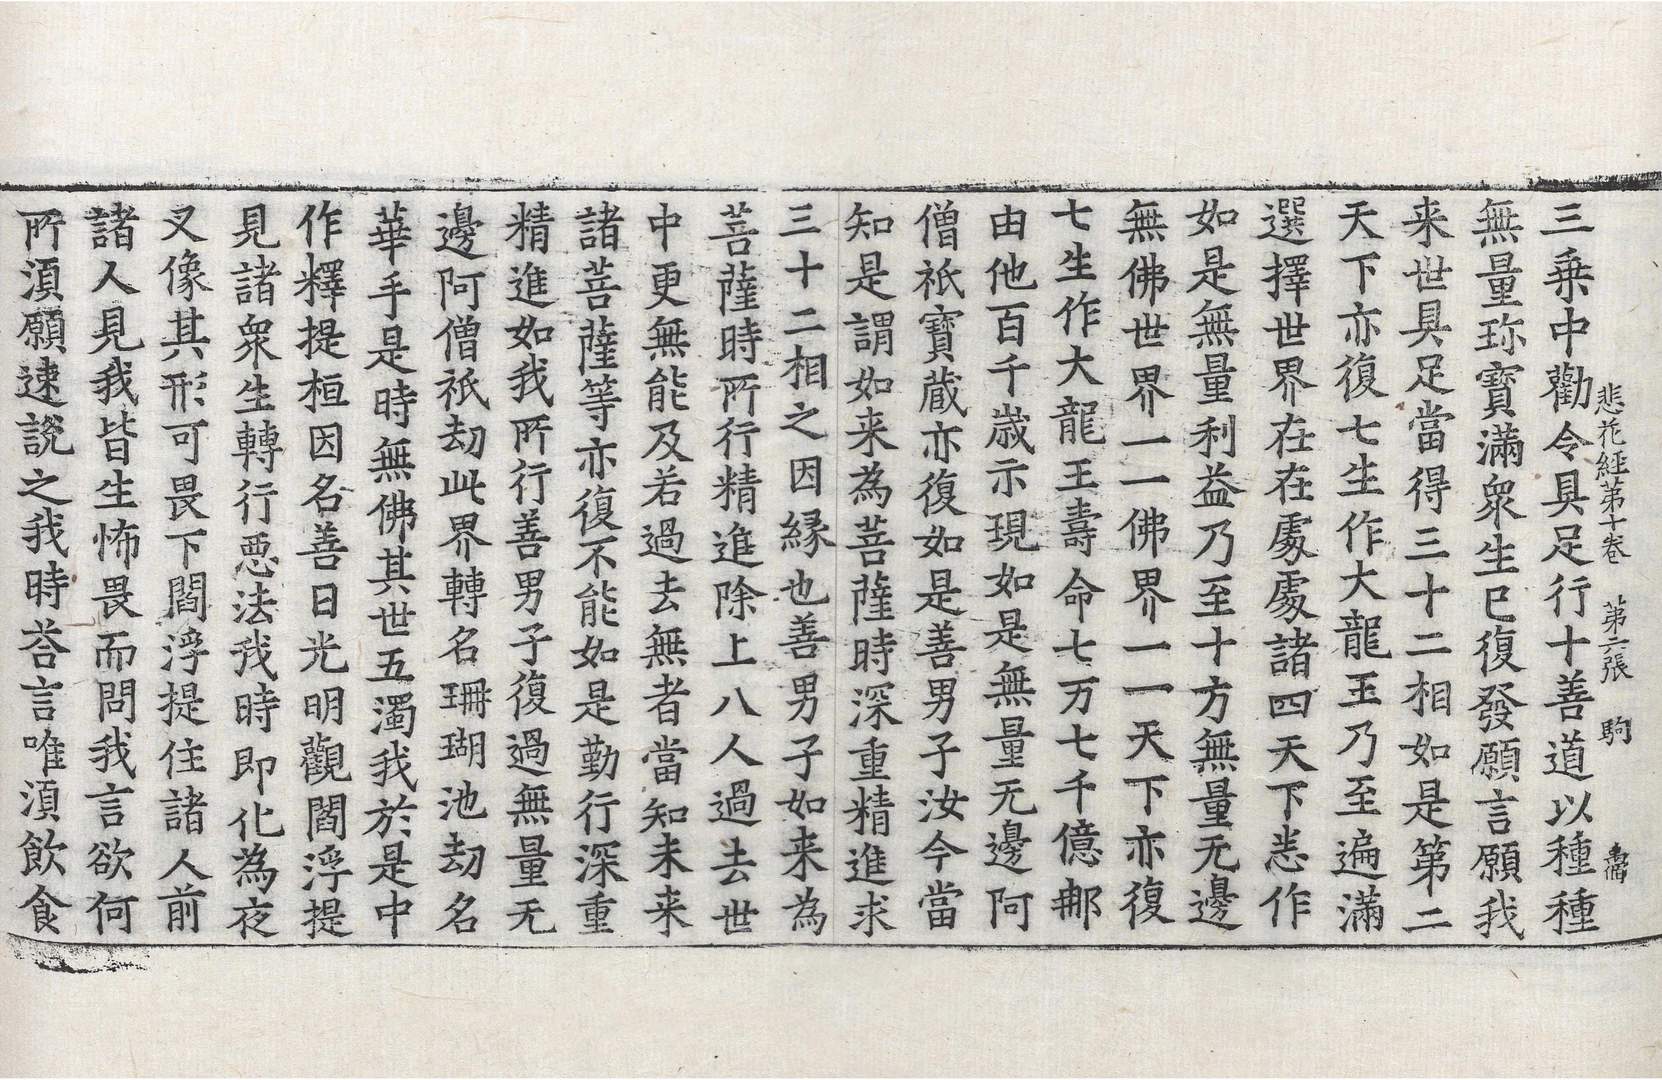 三乗中勸令具足行十善道以種種
悲花經第十卷　第六張　駒
無量珎寶滿衆生已復發願言願我
来世具足當得三十二相如是第二
天下亦復七生作大龍王乃至遍滿
選擇世界在在處處諸四天下悉作
如是無量利益乃至十方無量无邊
無佛世界一一佛界一一天下亦復
七生作大龍王壽命七万七千億那
由他百千歲示現如是無量无邊阿
僧祇寶蔵亦復如是善男子汝今當
知是謂如来為菩薩時深重精進求
三十二相之因縁也善男子如来為
菩薩時所行精進除上八人過去世
中更無能及若過去無者當知未来
諸菩薩等亦復不能如是勤行深重
精進如我所行善男子復過無量无
邊阿僧祇劫此界轉名珊瑚池劫名
華手是時無佛其世五濁我於是中
作釋提桓因名善日光明觀閻浮提
見諸衆生轉行惡法我時即化為夜
叉像其形可畏下閻浮提住諸人前
諸人見我皆生怖畏而問我言欲何
所湏願速說之我時荅言唯湏飲食